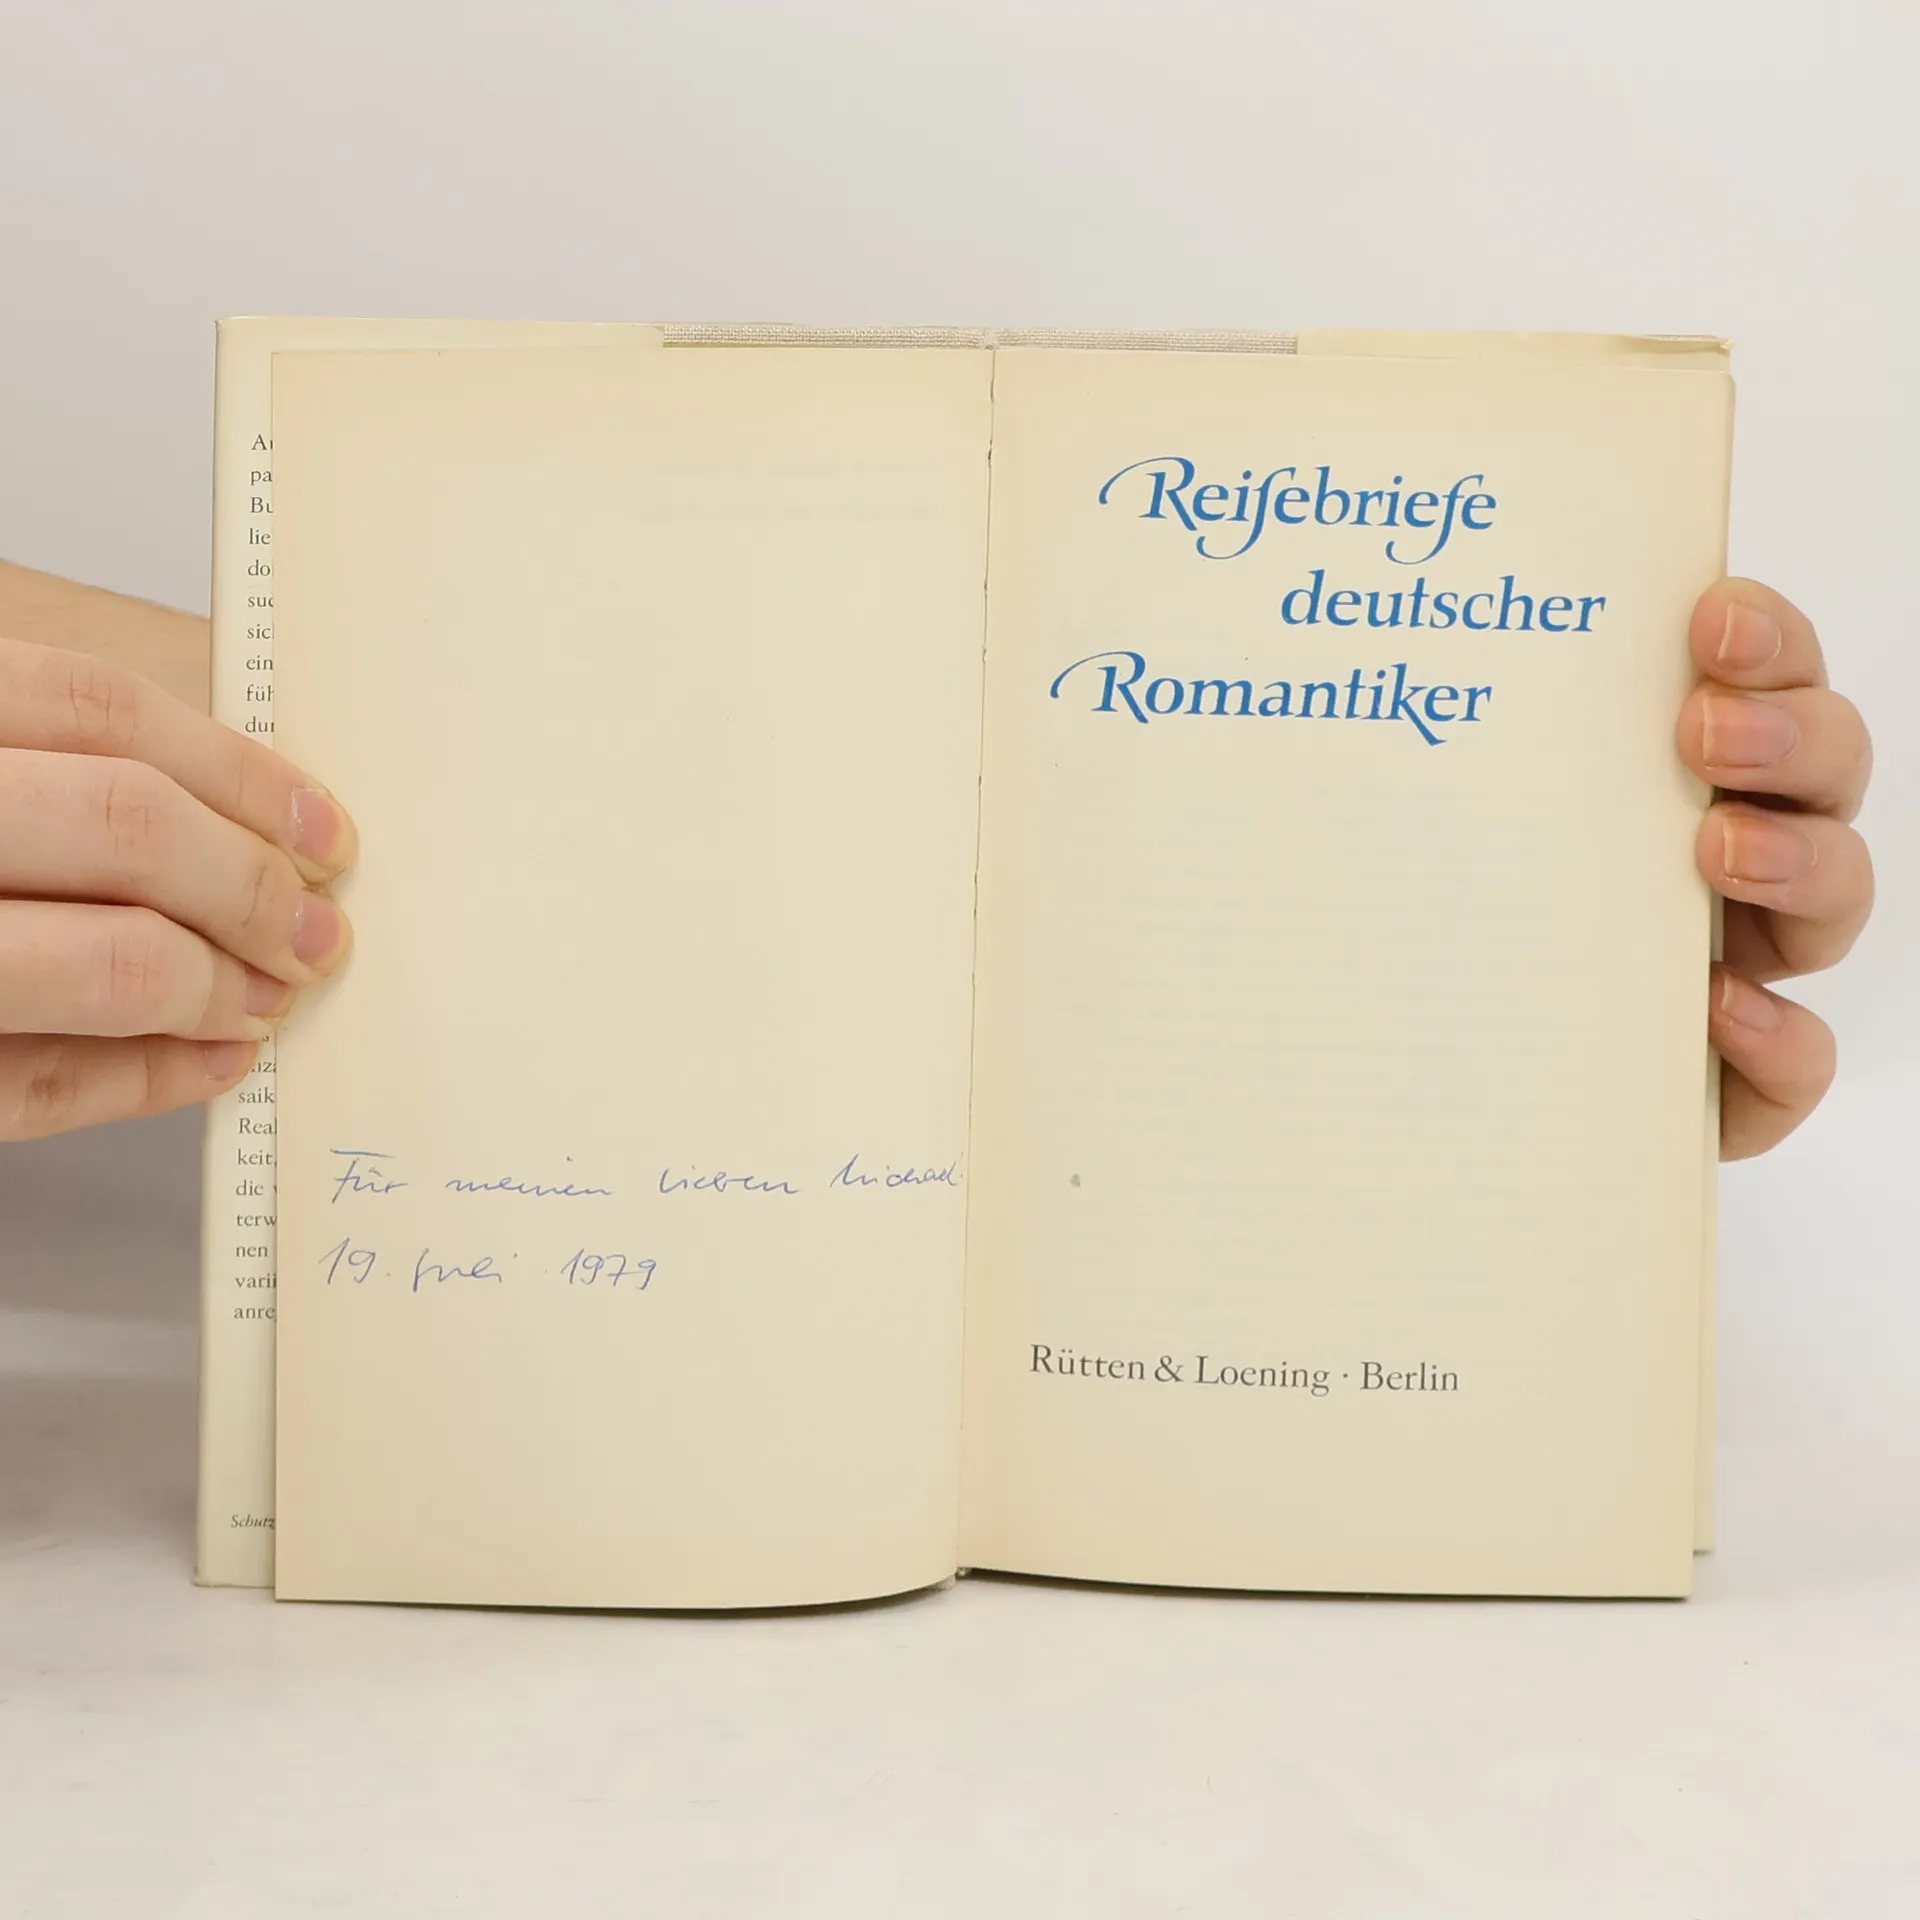 Au
pa
Bu
lie
do
suc
sic
ein
füh
dur
nzi
saik
Real
keit,
die
terw
nen
varii
anre
Schutz
Für meinen lieben Michael.
19. Juli 1979
Reiſebriefe
deutscher
Romantiker
Rütten & Loening · Berlin